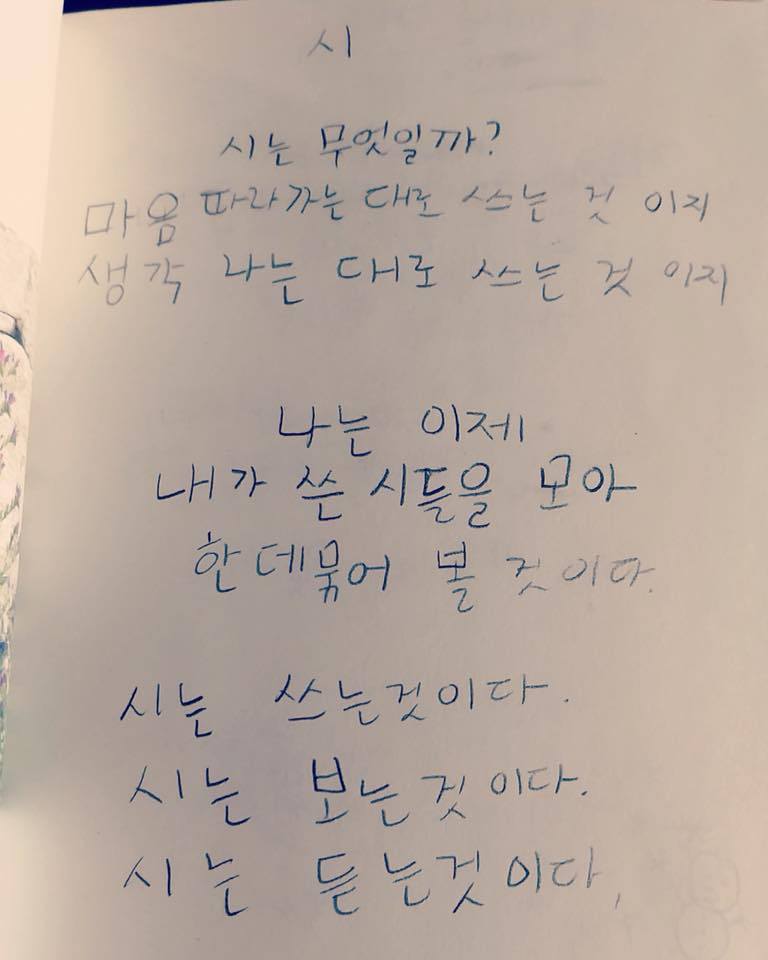 시
시는 무엇일까?
마음 따라가는 대로 쓰는 것 이지
생각 나는 대로 쓰는 것 이지
나는 이제
내가 쓴 시들을 모아
한데묶어 볼 것이다.
시는 쓰는것이다.
시는 보는것이다.
시는 듣는것이다,